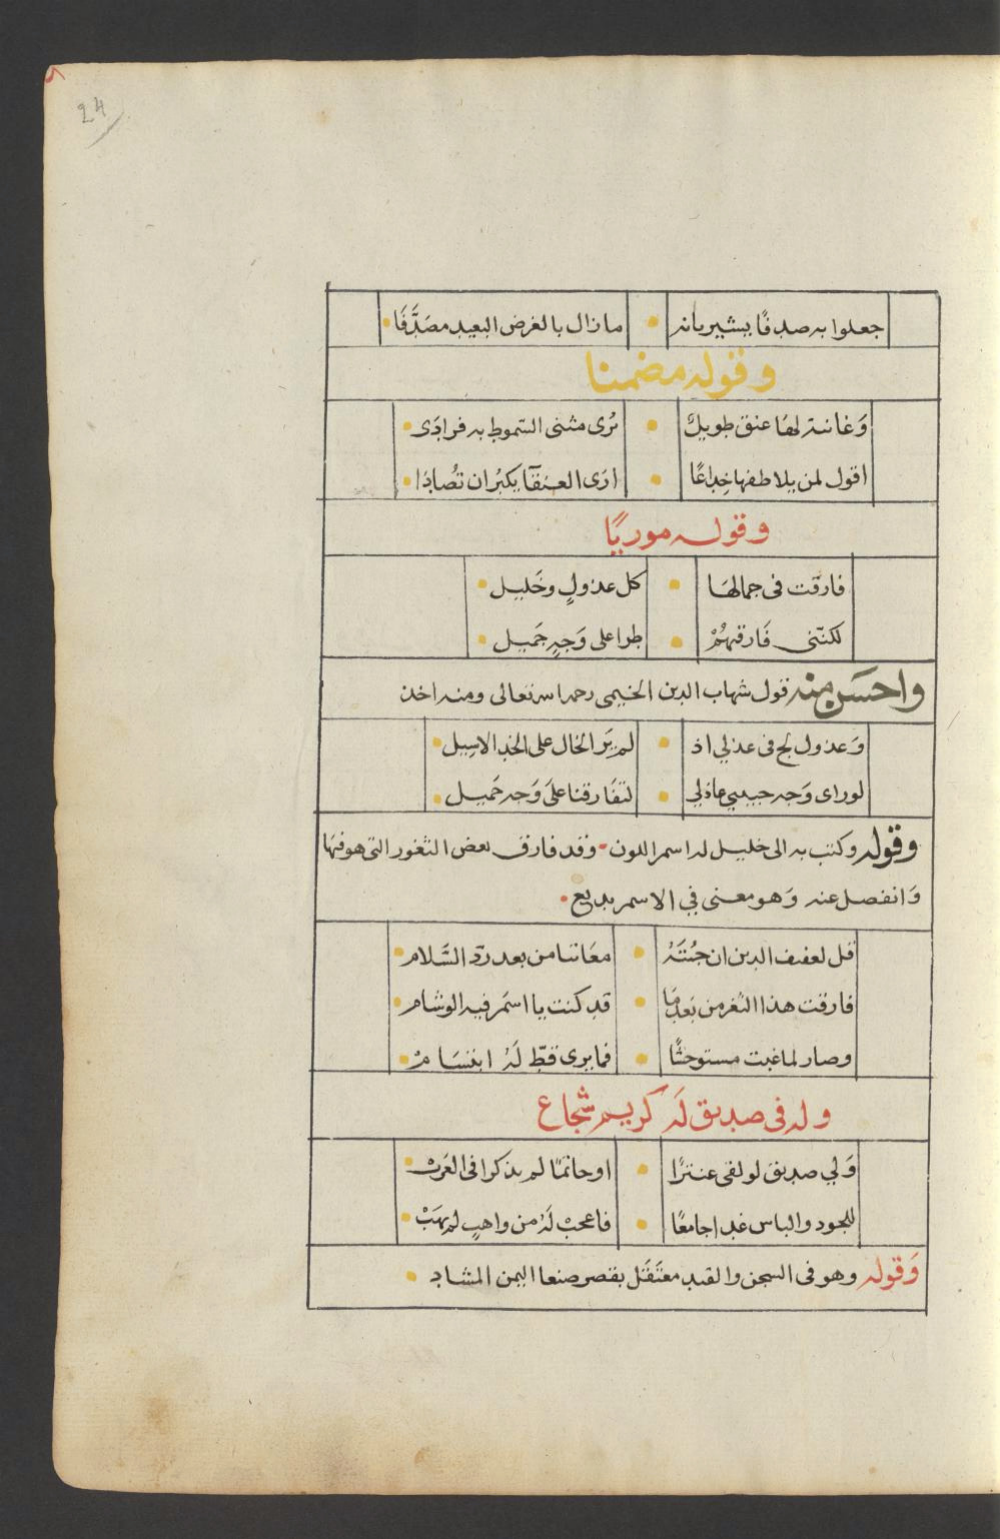 24
جعلوا به صدفًا يشير بانه • ما زال بالغرض البعيد مصَدَّفَا •
وقوله مضمنا
وَغانية لهَا عنق طويلٌ • تُرى مثنى السّموط به فرادَى •
اقول لمن يلاطفها خِداعًا • ارَى العنقآ يكبُر ان تُصَادَا •
وقوله موريًا
فارقت فى جمالهَا • كل عذولٍ وخَليل •
لكنّنى فَارقتهُمْ • طرا على وَجهٍ جَميل •
واحسَن منه قول شهاب الدين الخيمى رحمه الله تعالى ومنه اخذ
وَعذول لج فى عذلي اذ • لم يَر الخال على الخد الاسِيل •
لو راى وَجه حبيبي عاذلي • لتفَارقنا علَى وَجه جَميل •
وقوله وكتب به الى خليل له اسمر اللون • وقد فارق بعض الثغور التى هو فيهَا
وَانفصل عنه وَهو معنى في الاسمر بديع •
قل لعفيف الدين ان جئتَهُ • معَاتبا من بعد ردّ السَّلام •
فارقت هذا الثغر من بَعد مَا • قد كنت يا اسمَر فيه الوشام •
وصار لما غبت مستوحشًا • فما يرى قطّ لَهُ ابتسَامْ •
وله فى صديق لَه كريم شجاع
وَلي صديق لو لقى عنترًا • او حاتمًا لم يذكرا فى العَربْ •
للجود والباس غدا جامعًا • فاعجبْ لَهُ من واهبٍ لم يهَبْ •
وَقوله وهو فى السجن والقيد معتَقَل بقصر صنعا اليمن المشاد •